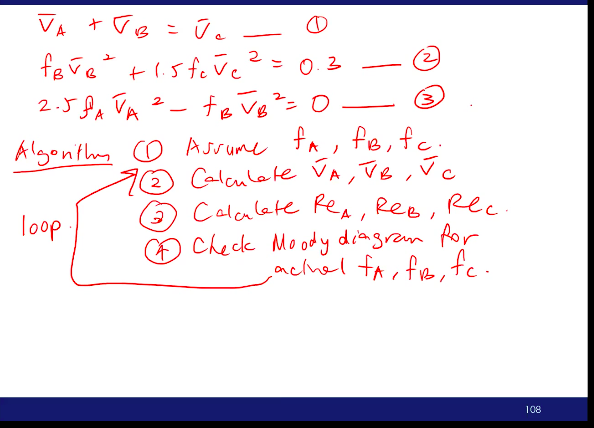 V̄A + V̄B = V̄c — ①
fB V̄B² + 1.5 fc V̄c² = 0.3 — ②
2.5 fA V̄A² - fB V̄B² = 0 — ③
Algorithm ① Assume fA, fB, fc.
② Calculate V̄A, V̄B, V̄c
③ Calculate ReA, ReB, Rec.
loop. ④ Check Moody diagram for
actual fA, fB, fc.
108